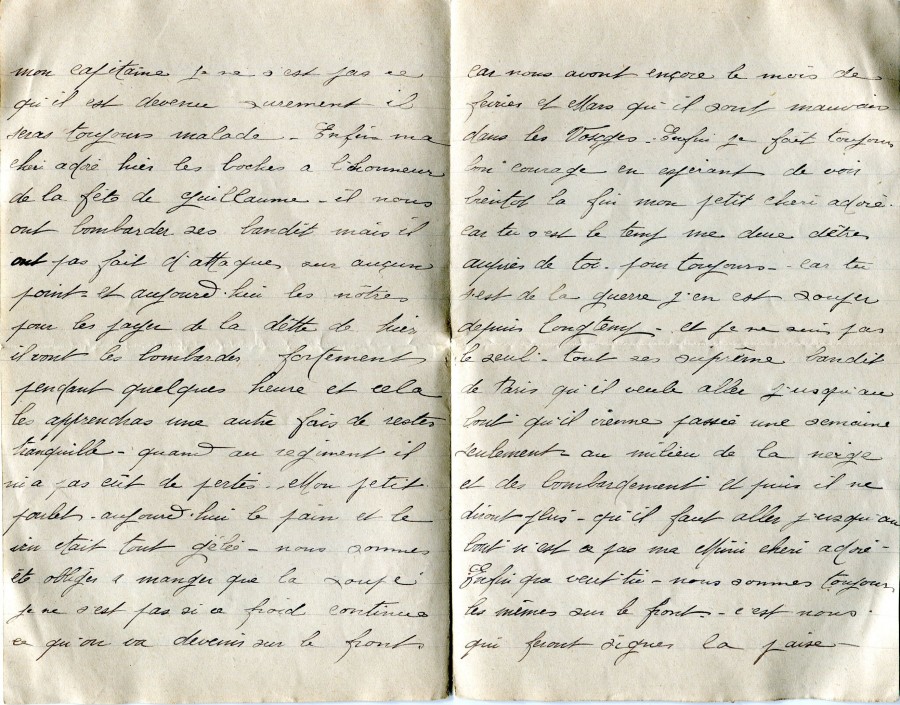 mon capitaine je ne s'est pas ce
qu'il est devenu surement il
seras toujours malade - Enfin ma
cheri adoré hier les boches a l'honneur
de la fête de Guillaume - il nous
ont bombarder ses bandit mais il
ont pas fait d'attaques sur auçun
point - et aujourd'hui les nôtres
pour les payer de la dêtte de hier
il vont les bombarder fortement
pendant quelques heure et cela
les apprendras une autre fois de rester
tranquille - quand au regiment il
n'i a pas eût de pertes - Mon petit
poulet - aujourd'hui le pain et le
vin etait tout gélée - nous sommes
été obliger a manger que la soupe
je ne s'est pas si ce froid continue
ce qu'on va devenir sur le front
car nous avont ençore le mois de
fevrier et Mars qu'il sont mauvais
dans les Vosges - Enfin je fait toujours
bon courage en espérant de voir
bientot la fin mon petit cheri adoré -
car tu s'est le temp me dure d'êtres
auprès de toi - pour toujours - car tu
s'est de la guerre j'en est souper
depuis longtemp - et je ne suis pas
le seul - tout ses suprême bandit
de Paris qu'il veule aller jusqu'au
bout qu'il vienne passée une semaine
seulement - au milieu de la neige
et des bombardement et puis il ne
diront plus - qu'il faut aller jusqu'au
bout n'est ce pas ma Mimi cheri adoré -
Enfin que veut tu - nous sommes toujours
les mêmes sur le front - c'est nous
qui feront signer la paix -